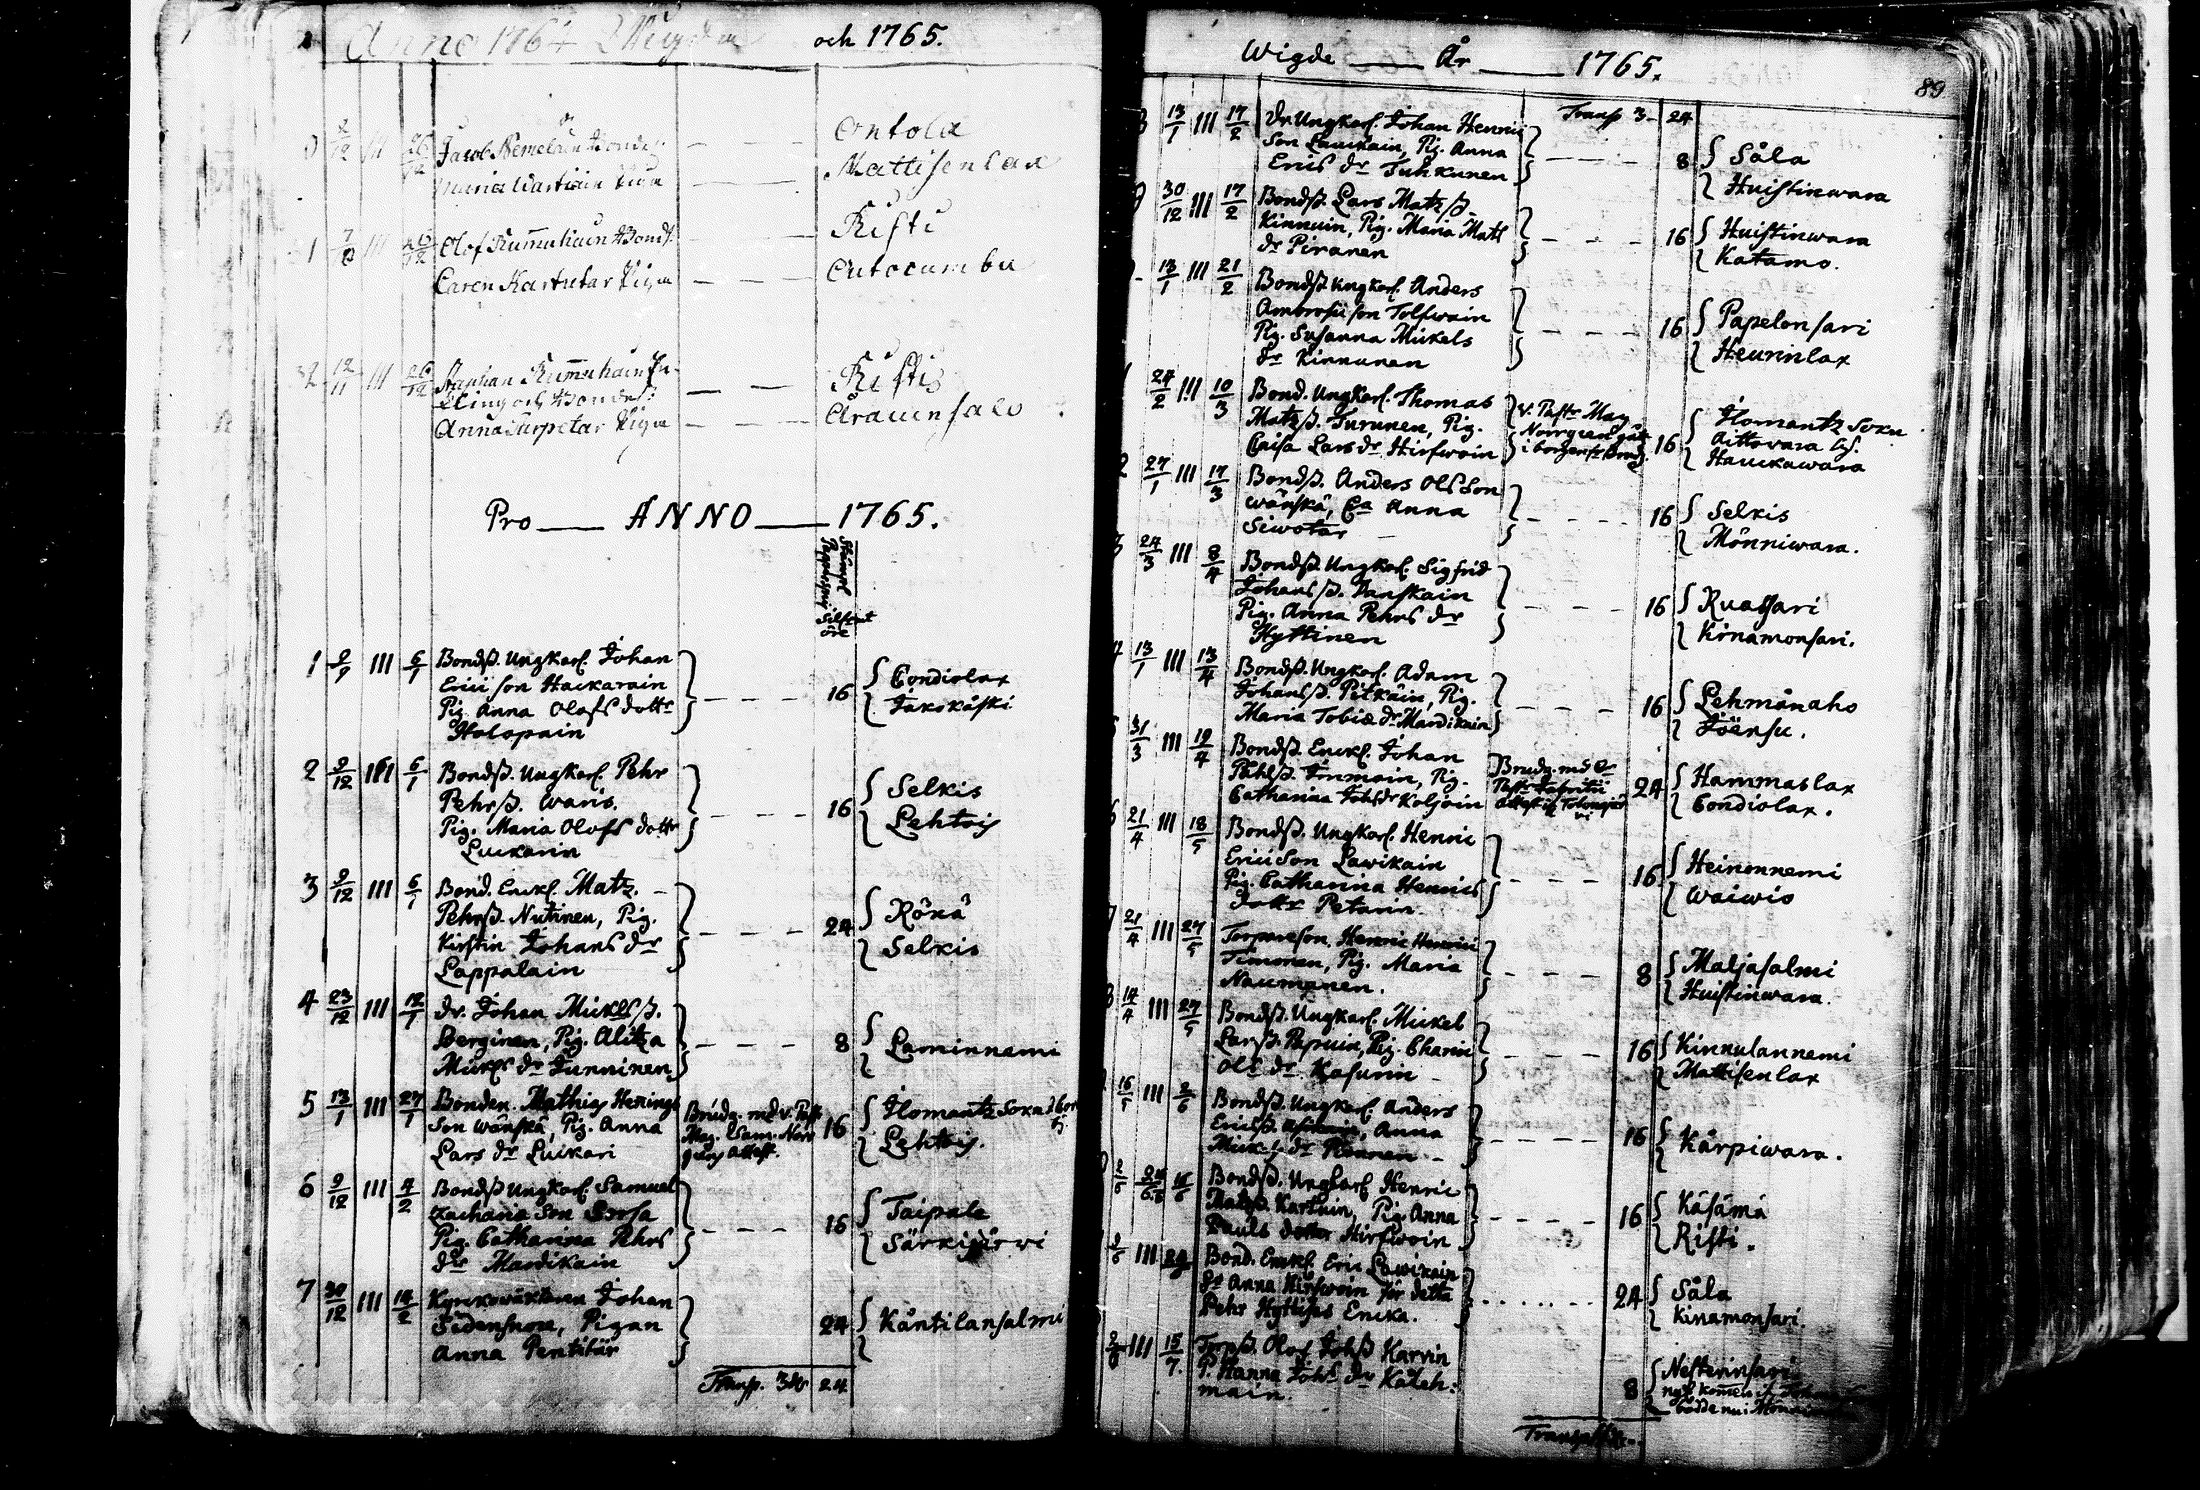 Anno 1764 Wigda och 1765.
Jacob Nemeläin Bonde
Maria Piga
Ontola
Mattisenlax
1 III 26/12 Olof Rummukain Bonds.
Caren Karhutar Piga
Risti
Outocumbu
12/11 III 26/12 Staphan Rummukain In-
och Bondes:
Anna Turpetar Piga
Ristis
Arauensalo
Pro ANNO 1765.
Stämpel
Pappersaf
Silfmt
öre
1 III 6/1 Bondß. Ungkarl. Johan
Erici son Hackarain
Pig. Anna Olofs dottr
Holopain
16
Condiolax
Jakokåski
2 9/12 III 6/1 Bondß. Ungkarl. Pehr
Pehrß. Waris.
Pig. Maria Olofs dottr
Luckarin
16
Selkis
Lehtois
3 9/12 III 6/1 Bond. Enckl. Matz.
Pehrß. Nutinen, Pig.
Kirstin Johans dr
Lappalain
24
Röxä
Selkis
4 23/12 III 12/1 dr. Johan Mickelß.
Berginen, Pig. Alitza
Mickels dr Tunninen
8
Laminnemi
5 13/1 III 27/1 Bonden. Mathias Henrics
son Wänskä, Pig. Anna
Lars dr Luckari
Brudg. md v. Past.
Mag. Sam. Norr
grens Attest.
16
Ilomantz Sokn
Lehtois.
6 9/12 III 4/2 Bondß Ungkarl Samuel
Zacharia son Sorsa
Pig. Catharina Pehrs
dr Mardikain
16
Taipale
Särkijärwi
7 30/12 III 14/2 Kyrckowäktaren Johan
Sidensnore, Pigan
Anna Pentitär
24
Kåntilansalmi
Transp. 3 24
Wigde År 1765.
89
Transp 3 24
13/1 III 17/2 dr. Ungkarl. Johan Henric
son Lauckain, Pig. Anna
Erics dr Tuhkunen
8
Såla
Huistinwara
30/12 III 17/2 Bondß. Lars Matzß.
Kinnuin, Pig. Maria Mats
dr Piranen
16
Huistinwara
Katamo.
13/1 III 21/2 Bondß Ungkarl. Anders
Ambrosii son Tolfwain
Pig. Susanna Mickels
dr Kinnunen
16
Papelonsari
Heurinlax
24/2 III 10/3 Bond. Ungkarl. Thomas
Matzß. Turunen, Pig.
Caisa Lars dr Hirfwoin
v. Pastr Mag
Norrgrens
16
Ilomantz Sokn
Aittovara
Hauckawara
27/1 III 17/3 Bondß. Anders Ols son
Wänskä, Ea Anna
Siwotar
16
Selkis
Mönniwara.
24/3 III 8/4 Bondß. Ungkarl. Sigfrid
Johansß. Danskain
Pig. Anna Pehrs dr
Hyttinen
16
Ruassari
Kinamonsari.
13/1 III 13/4 Bondß. Ungkarl. Adam
Johansß. Pitkäin, Pig.
Maria Tobiæ dr Mardikain
16
Lehmånaho
Jöensu.
31/3 III 19/4 Bondß. Enckl. Johan
Påhlß. Immoin, Pig.
Catharina Johs dr Koljoin
Brudg. md
Pastr Fabritii
attest
24
Hammaslax
Condiolax.
21/4 III 18/5 Bondß. Ungkarl. Henric
Erici son Lawikain
Pig. Catharina Henrics
dottr Petarin
16
Heinonnemi
Waiwio
21/4 III 27/5 Torpareson Henric Henrici
Timonen, Pig. Maria
Naumanen.
8
Maljasalmi
Huistinwara.
14/4 III 27/5 Bondß. Ungkarl. Mickel
Larsß. Papuin, Pig. Charin
Ols dr Kasurin
16
Kinnulannemi
Mattisenlax
16/5 III 2/6 Bondß. Ungkarl. Anders
Ericsß. Anna
Mickels dr
16
Kärpiwara.
Bondß. Ungkarl Henric
Matsß. Karhuin, Pig. Anna
Pauls dotter Hirfwoin
16
Käsämä
Risti.
III Bond. Enckl. Eric Lawikain
dr Anna Hirfwoin för detta
Pehr Hyttises Encka.
24
Såla
Kinamonsari.
III 15/7 Torpß. Olof Johß Karvin
P. Hanna Johs dr Kaleh:
main.
8
Nestennsari
Transp